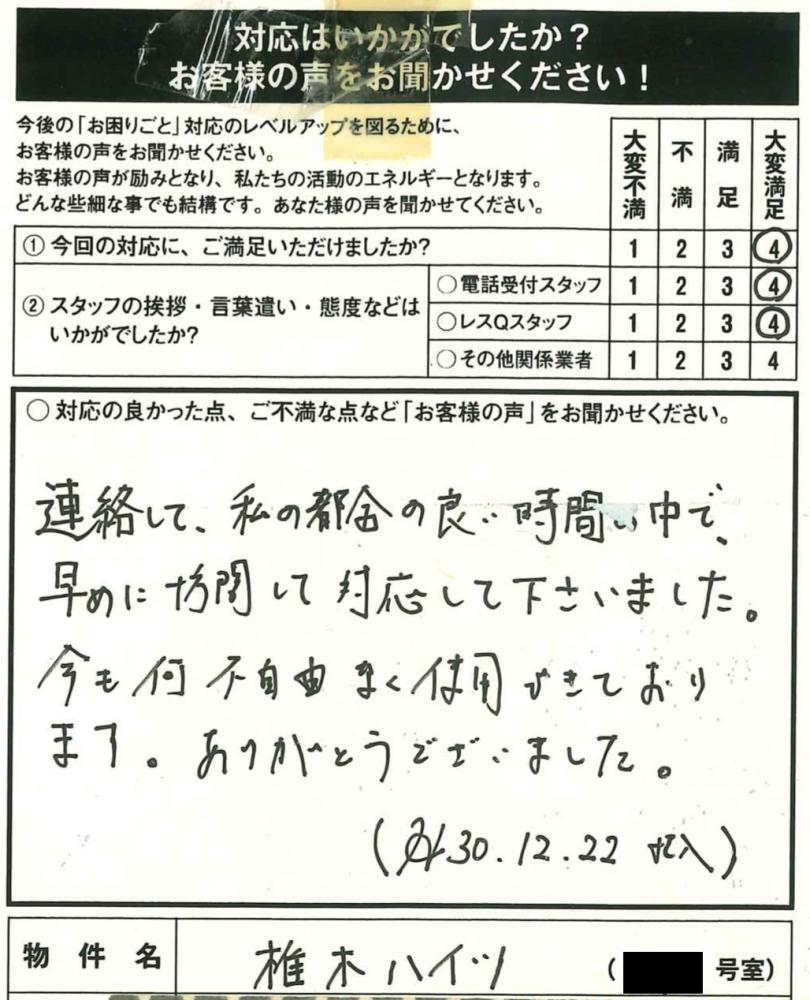 対応はいかがでしたか?
お客様の声をお聞かせください!
今後の「お困りごと」対応のレベルアップを図るために、
お客様の声をお聞かせください。
お客様の声が励みとなり、私たちの活動のエネルギーとなります。
どんな些細な事でも結構です。あなた様の声を聞かせてください。
大変不満 不満 満足 大変満足
① 今回の対応に、ご満足いただけましたか? 1 2 3 4
② スタッフの挨拶・言葉遣い・態度などは
いかがでしたか?
○電話受付スタッフ 1 2 3 4
○レスQスタッフ 1 2 3 4
○その他関係業者 1 2 3 4
○ 対応の良かった点、ご不満な点など「お客様の声」をお聞かせください。
連絡して、私の都合の良い時間の中で、
早めに訪問して対応して下さいました。
今も何不自由なく使用できており
ます。ありがとうございました。
(H30.12.22 記入)
物件名 椎木ハイツ ( 号室)